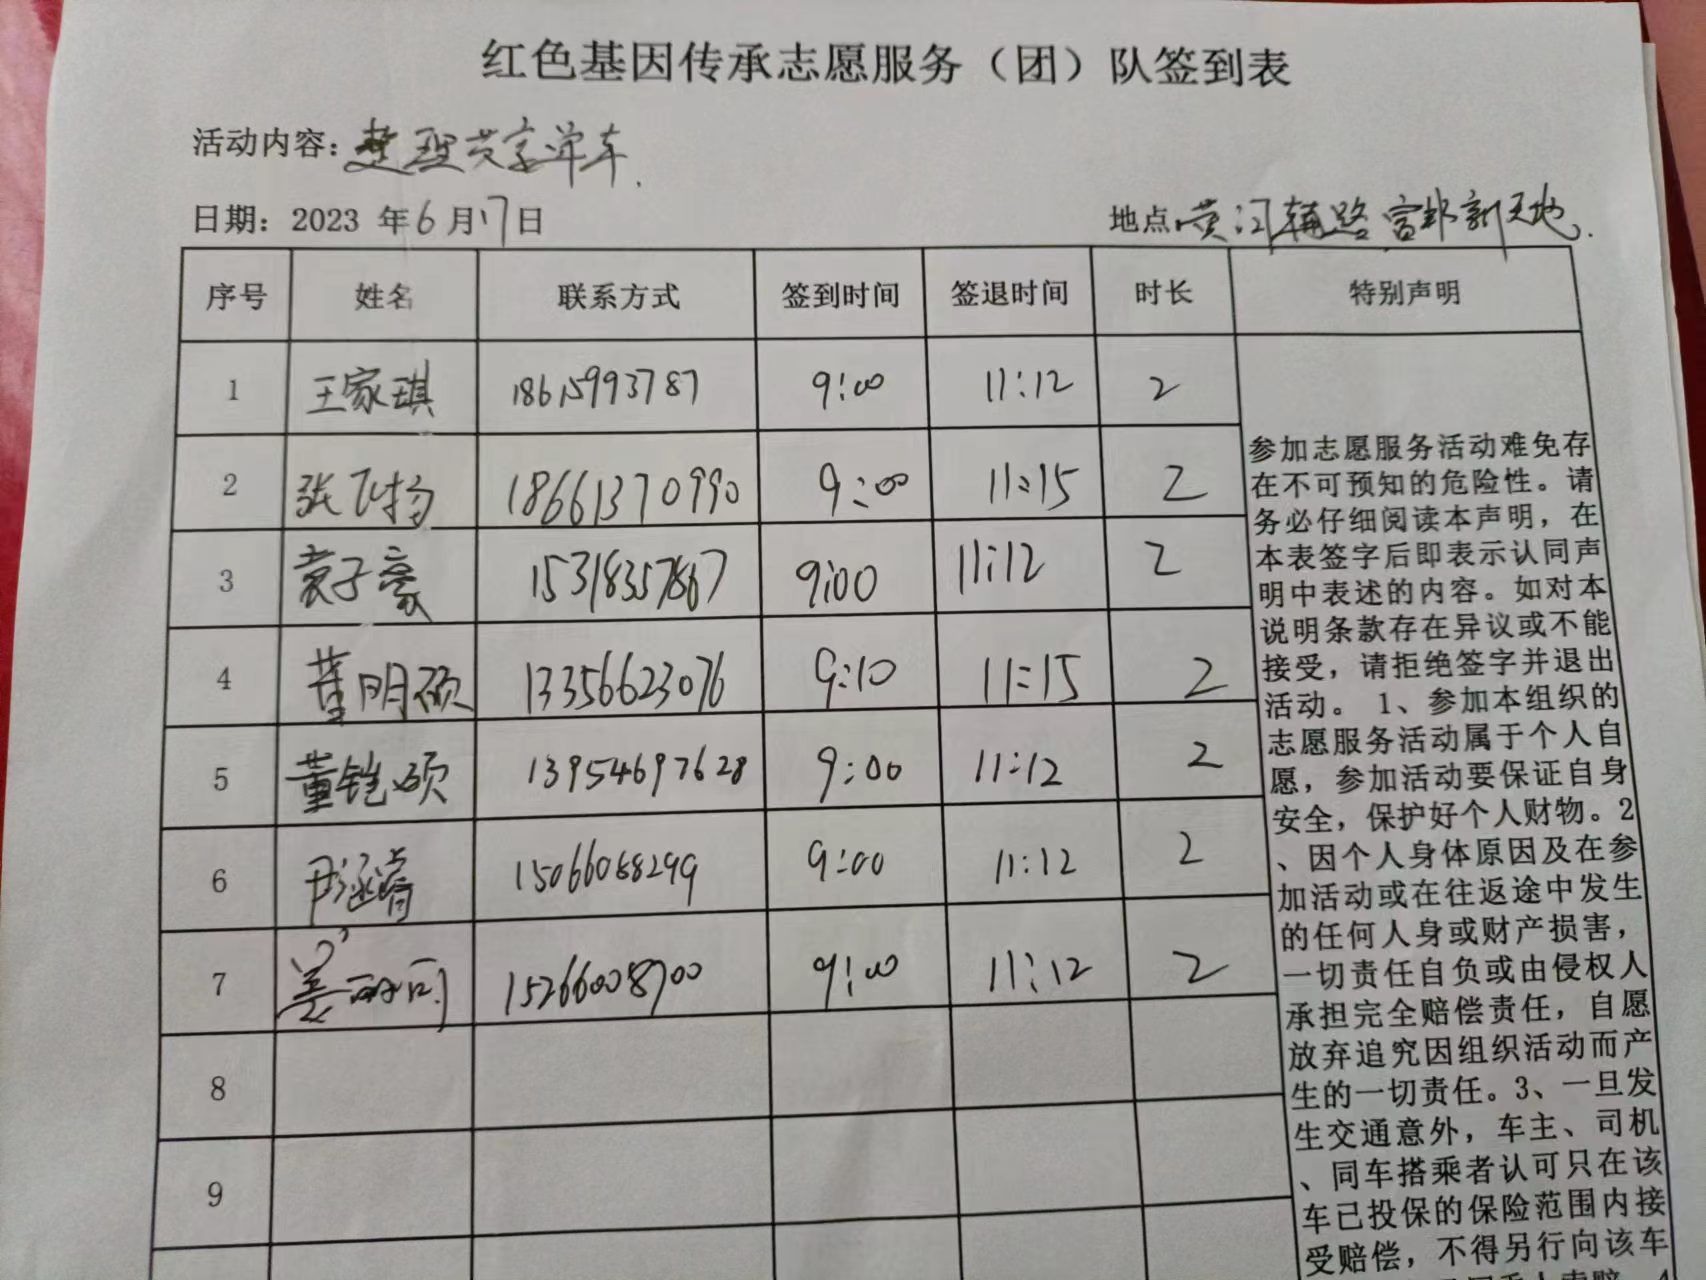 红色基因传承志愿服务（团）队签到表
活动内容：整理共享单车.
日期：2023 年6月17日 地点 黄河辅路富邦新天地.
序号 姓名 联系方式 签到时间 签退时间 时长 特别声明
1 王家琪 18615993787 9:00 11:12 2
2 张飞扬 18661370990 9:00 11:15 2
3 袁子豪 15318357867 9:00 11:12 2
4 董明硕 13356623076 9:10 11:15 2
5 董铠硕 13954697628 9:00 11:12 2
6 尹涵睿 15066088299 9:00 11:12 2
7 姜 15266008700 9:00 11:12 2
8
9
参加志愿服务活动难免存
在不可预知的危险性。请
务必仔细阅读本声明，在
本表签字后即表示认同声
明中表述的内容。如对本
说明条款存在异议或不能
接受，请拒绝签字并退出
活动。 1、参加本组织的
志愿服务活动属于个人自
愿，参加活动要保证自身
安全，保护好个人财物。2
、因个人身体原因及在参
加活动或在往返途中发生
的任何人身或财产损害，
一切责任自负或由侵权人
承担完全赔偿责任，自愿
放弃追究因组织活动而产
生的一切责任。3、一旦发
生交通意外，车主、司机
、同车搭乘者认可只在该
车已投保的保险范围内接
受赔偿，不得另行向该车